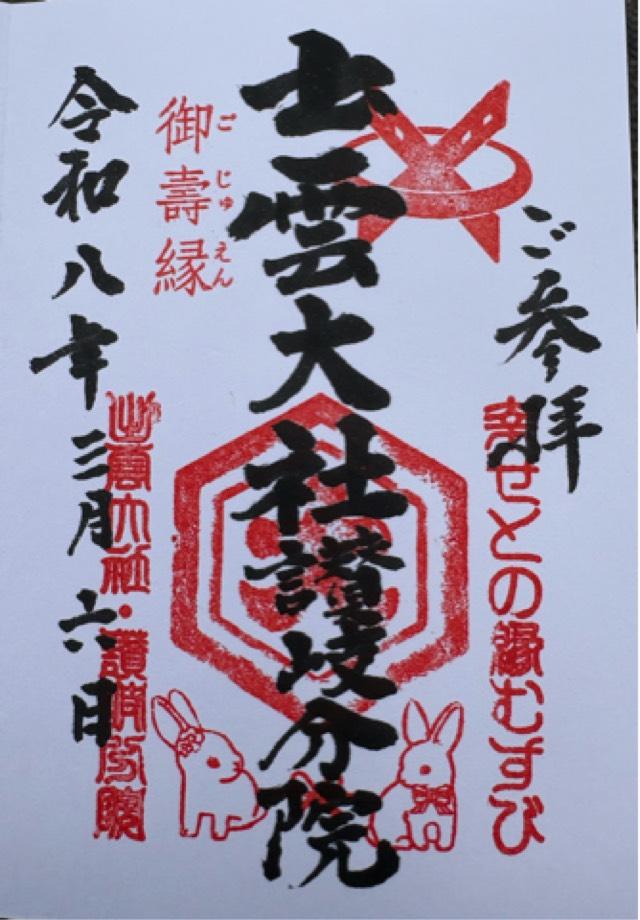 ご参拝
幸せとの縁むすび
出雲大社讃岐分院
御壽縁
ごじゅえん
令和八年三月六日
出雲大社・讃岐分院